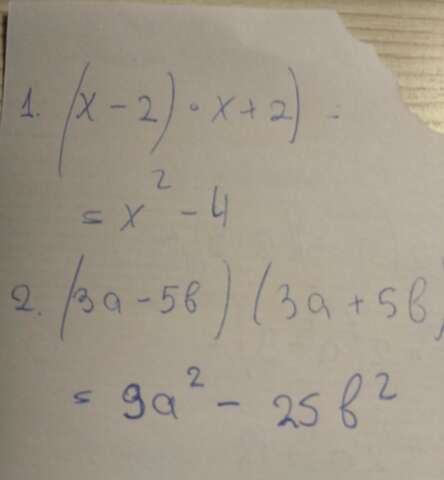 1. (x - 2) · x + 2) =
= x² - 4
2. (3a - 5b) (3a + 5b)
= 9a² - 25b²